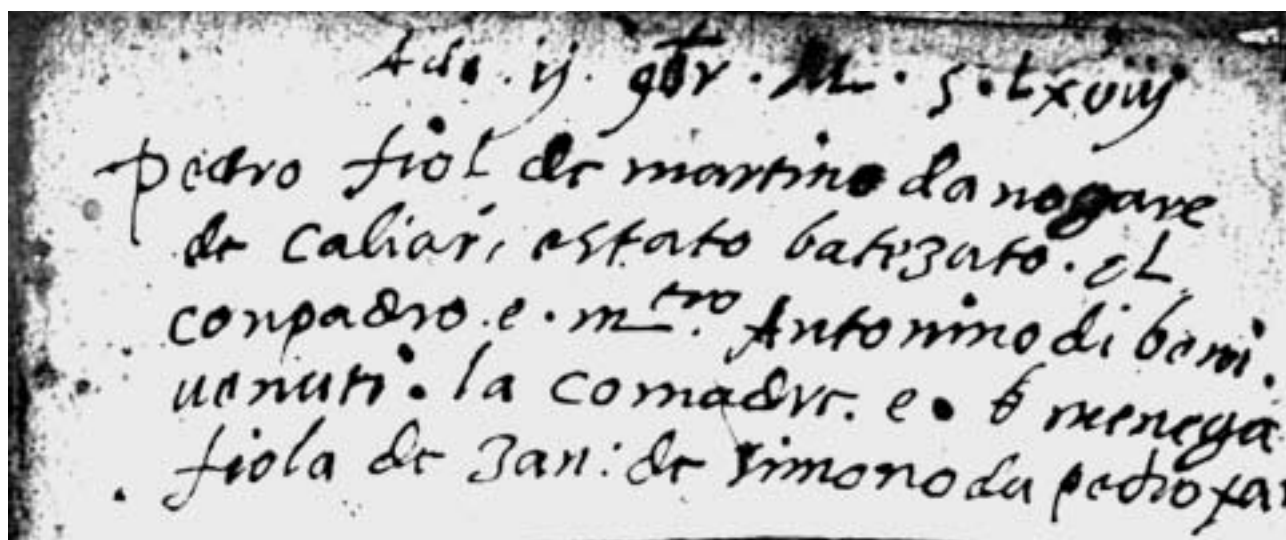 Adi . ij . 9br . M . 5 . Lxviij
pedro fiol de martino da nogare
de caliar, estato batezato . el
conpadro . e . m.tro Antonino di beni .
uenuti . la comadre . e . menega
fiola de zan : de simono da pedro